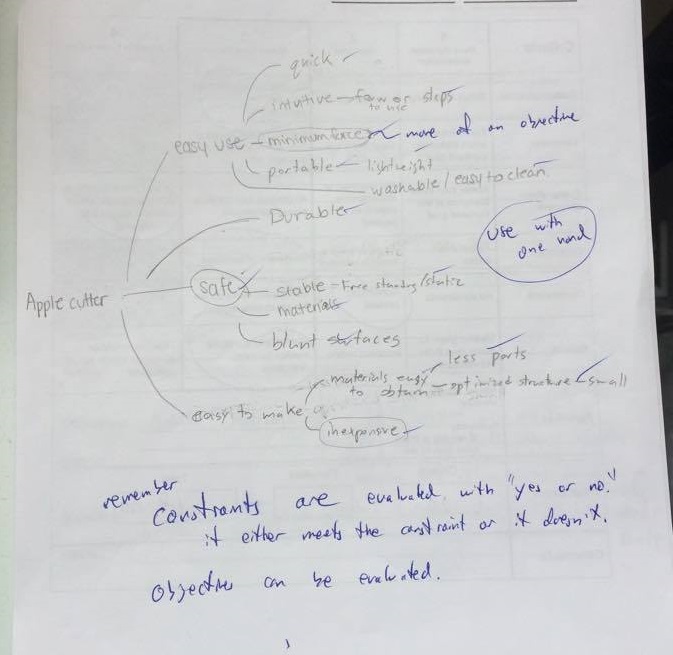 quick
intuitive - few or steps
to use
easy use - minimum force more of an objective
portable - lightweight
washable / easy to clean
Durable
use with
one hand
Safe
stable - free standing/static
Apple cutter
materials
blunt surfaces
less parts
materials easy
to obtain - optimized structure - small
easy to make
inexpensive
remember
Constraints are evaluated with "yes or no."
it either meets the constraint or it doesn't.
Objectives can be evaluated.